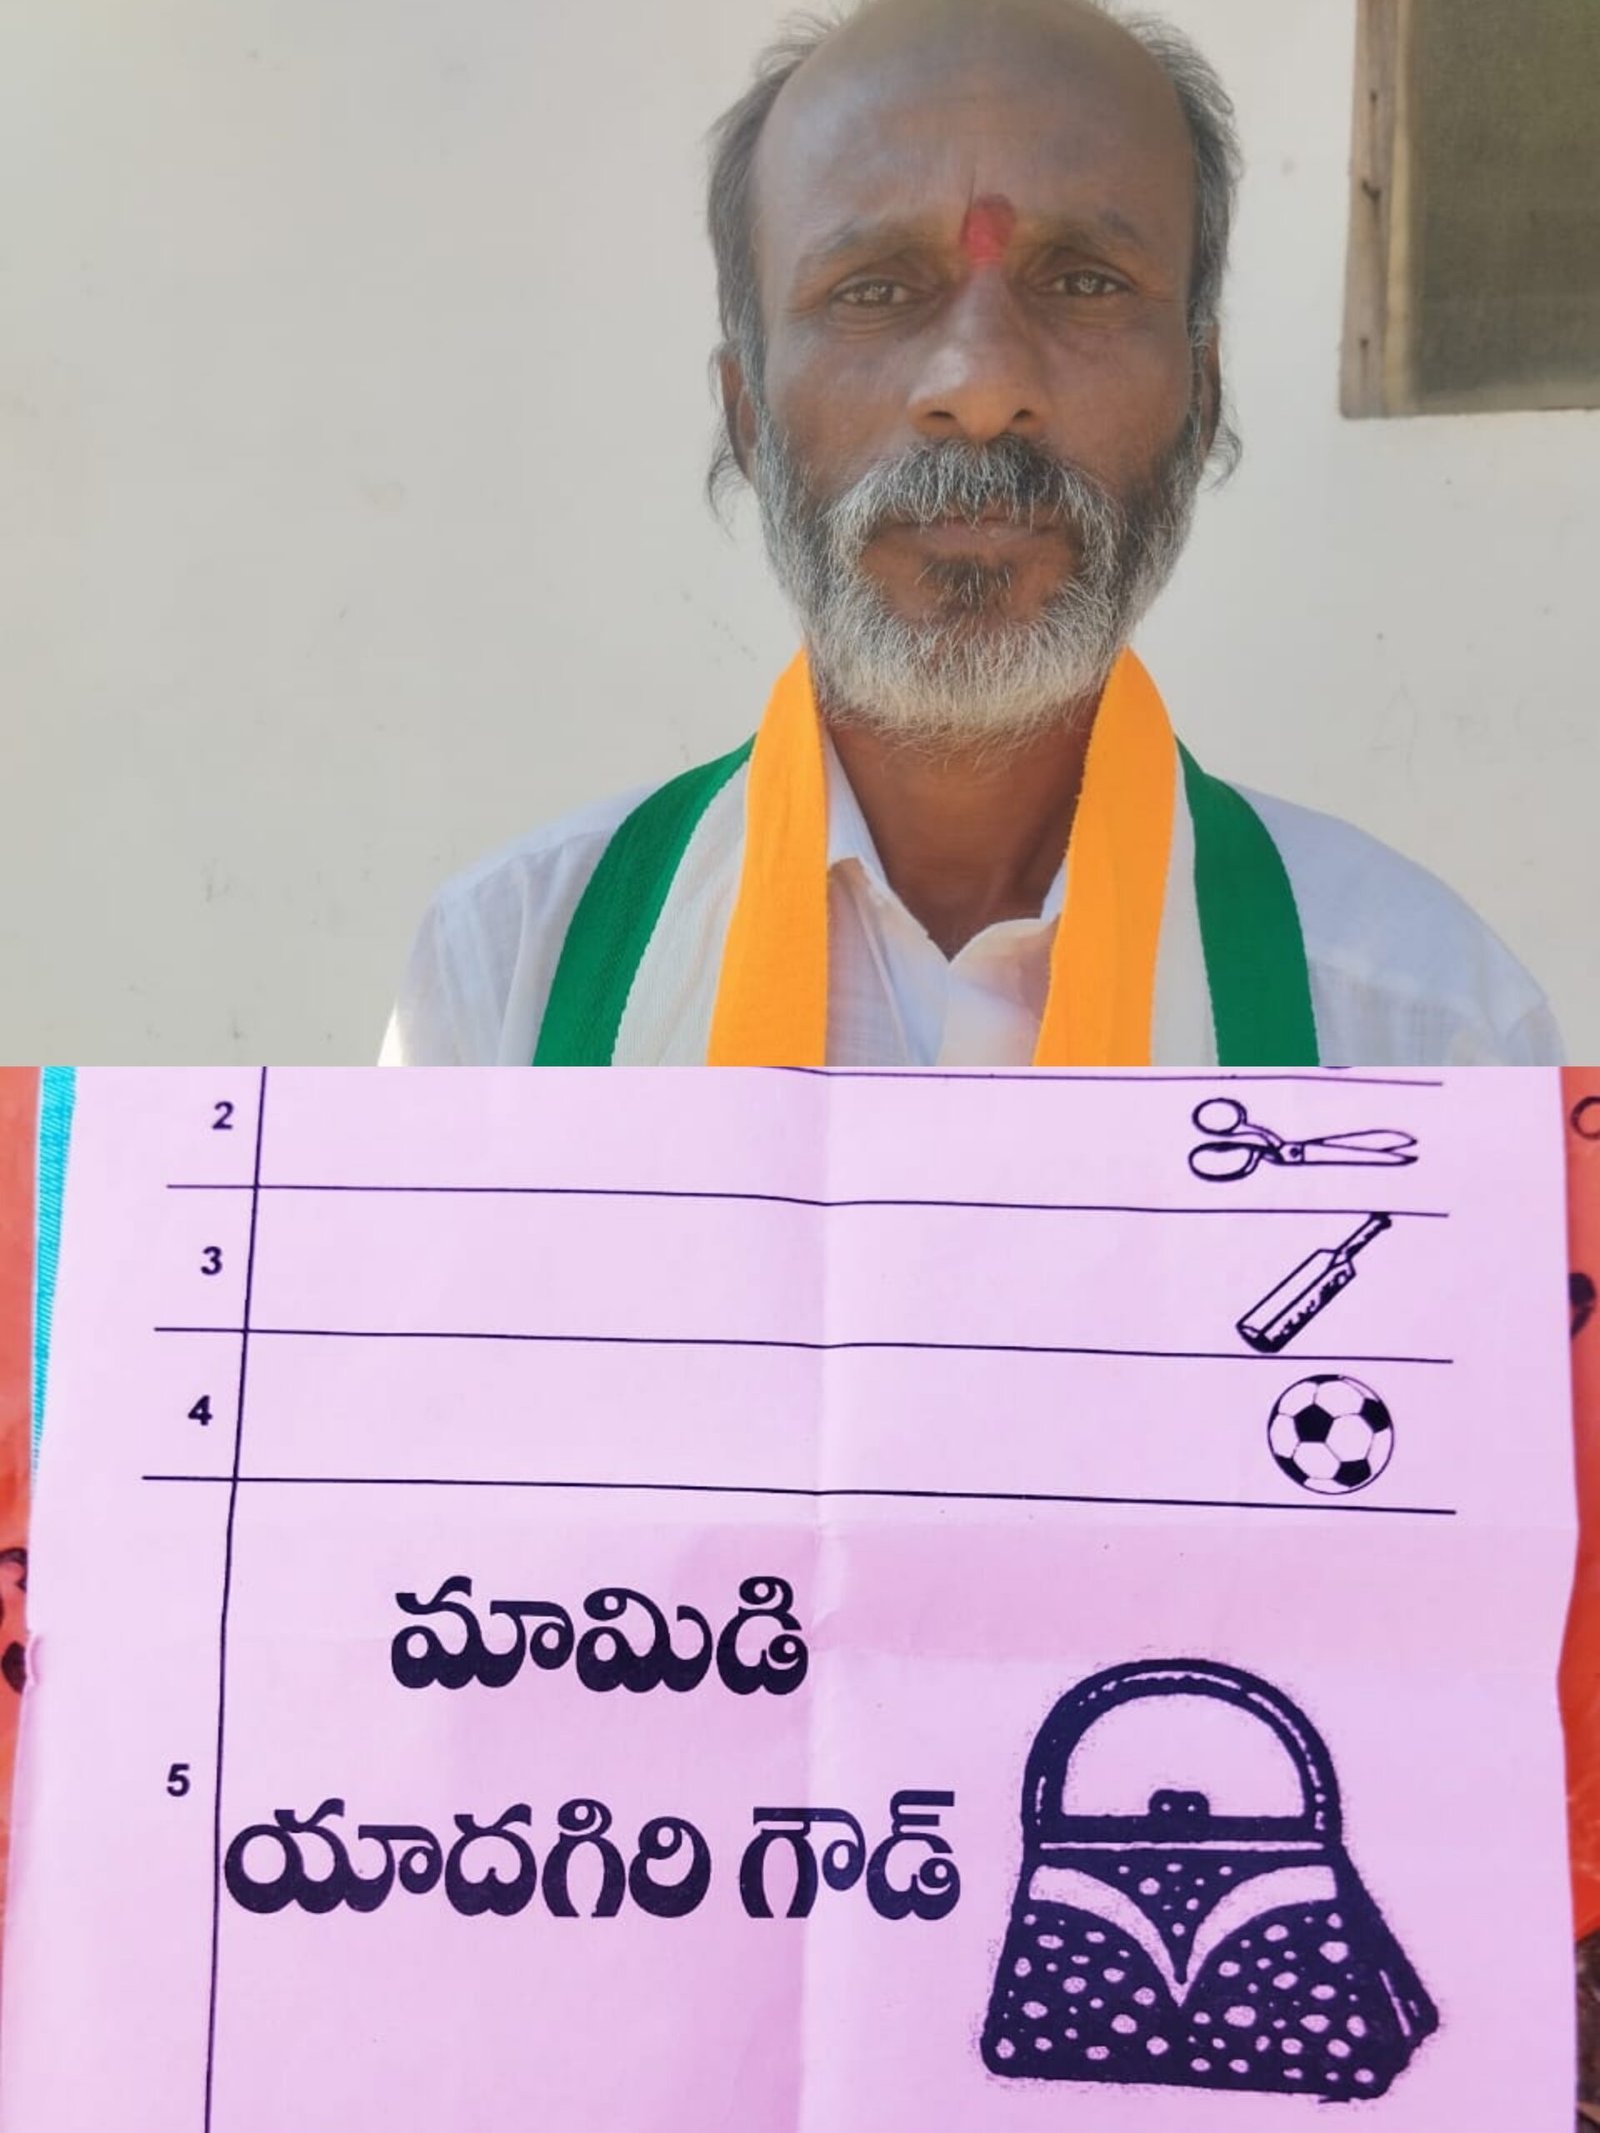 2
3
4
మామిడి
5
యాదగిరి గౌడ్